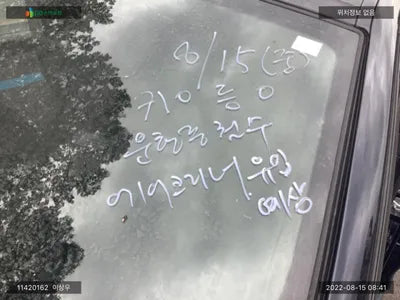 위치정보 없음
8/15(중)
키O 등O
운행중 침수
에어크리너 유입
예상
11420162 이상우
2022-08-15 08:41